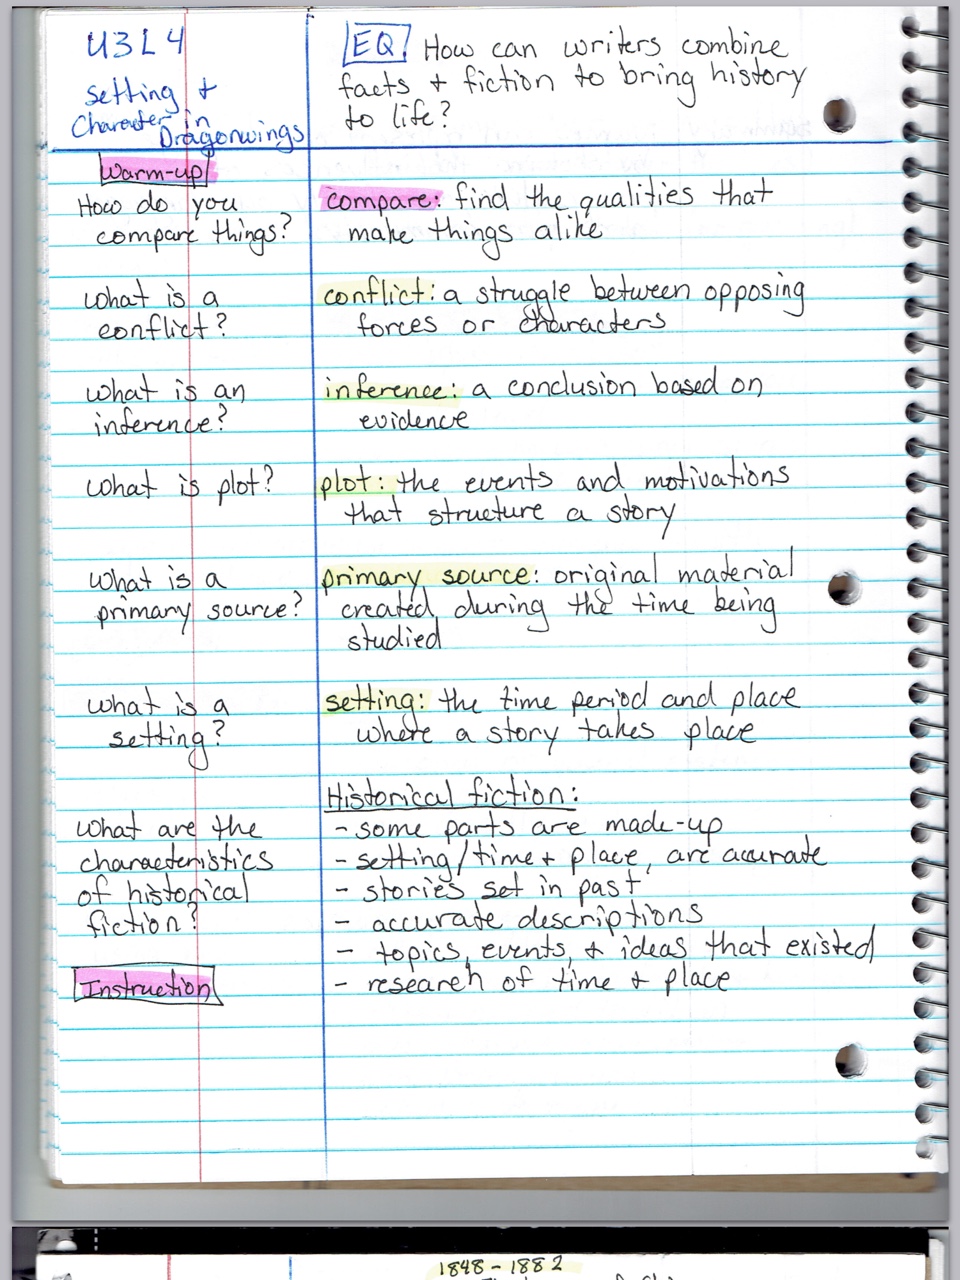 U3L4
Setting +
Character in
Dragonwings
EQ! How can writers combine
facts + fiction to bring history
to life?
Warm-up
How do you
compare things?
compare: find the qualities that
make things alike
what is a
conflict?
conflict: a struggle between opposing
forces or characters
what is an
inference?
inference: a conclusion based on
evidence
what is plot?
plot: the events and motivations
that structure a story
what is a
primary source?
primary source: original material
created during the time being
studied
what is a
setting?
setting: the time period and place
where a story takes place
what are the
characteristics
of historical
fiction?
Historical fiction:
- some parts are made-up
- setting/time + place, are accurate
- stories set in past
- accurate descriptions
- topics, events, + ideas that existed
- research of time + place
Instruction
1848-1882